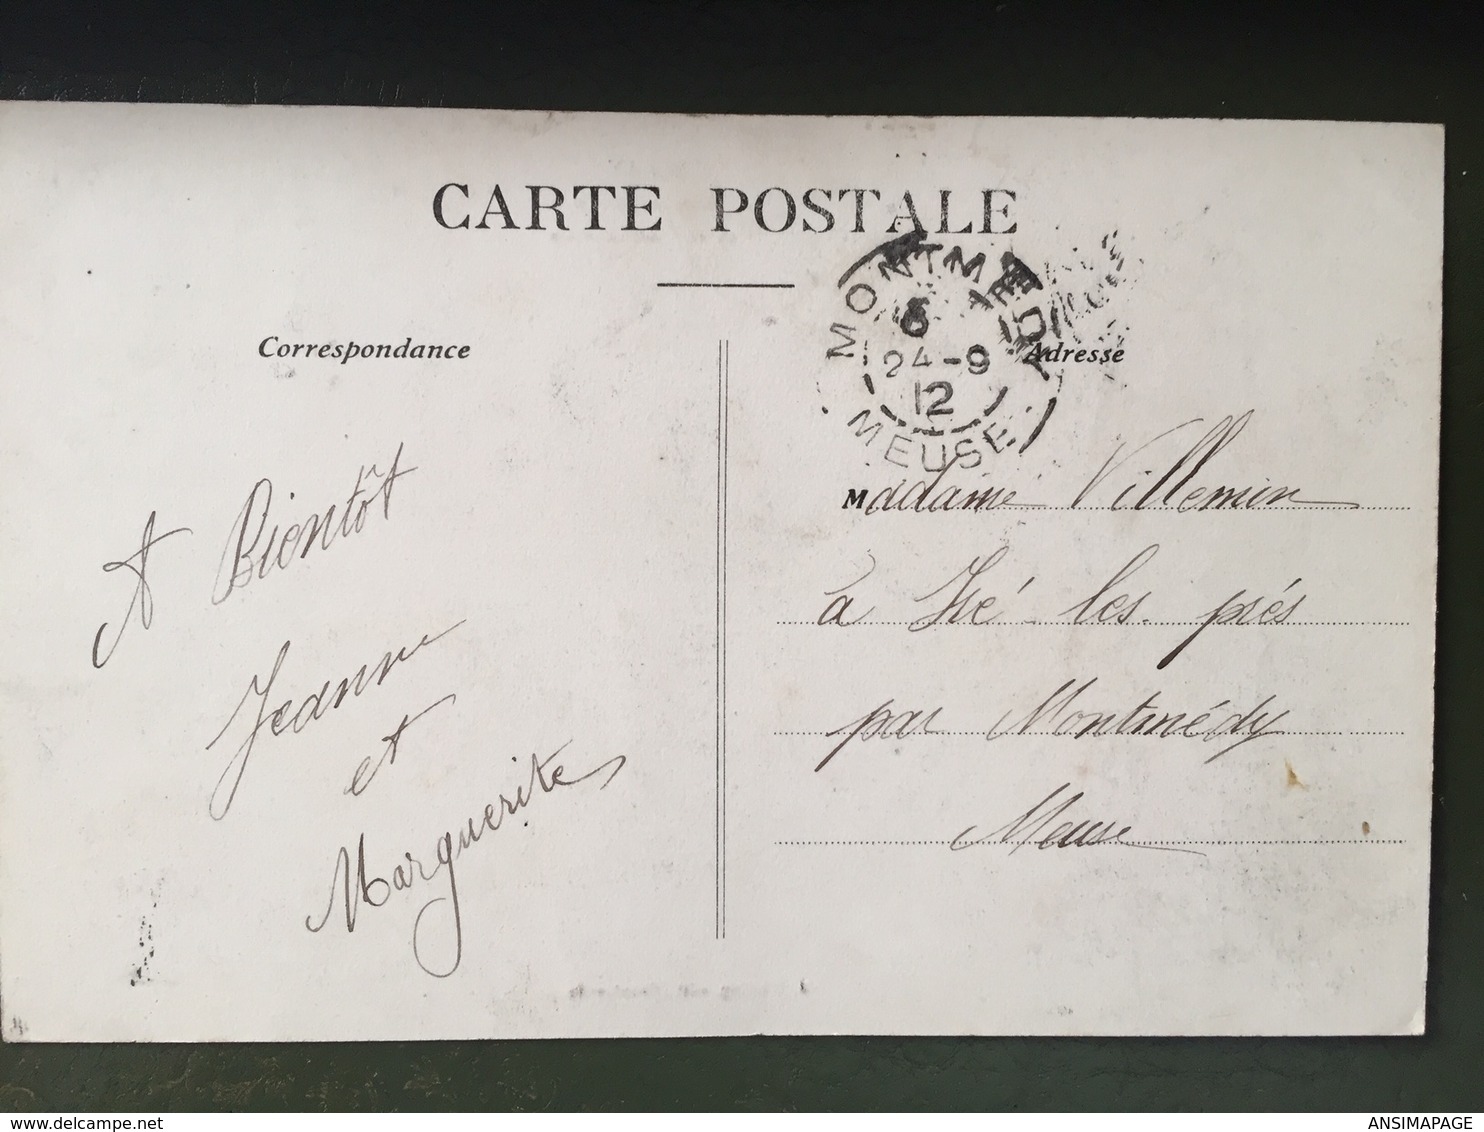 CARTE POSTALE
Correspondance
Adresse
MONTMÉDY
6
24-9
12
MEUSE
A Bientôt
Jeanne
et
Marguerite
Madame Villemin
à Iré les prés
par Montmédy
Meuse
www.delcampe.net
ANSIMAPAGE